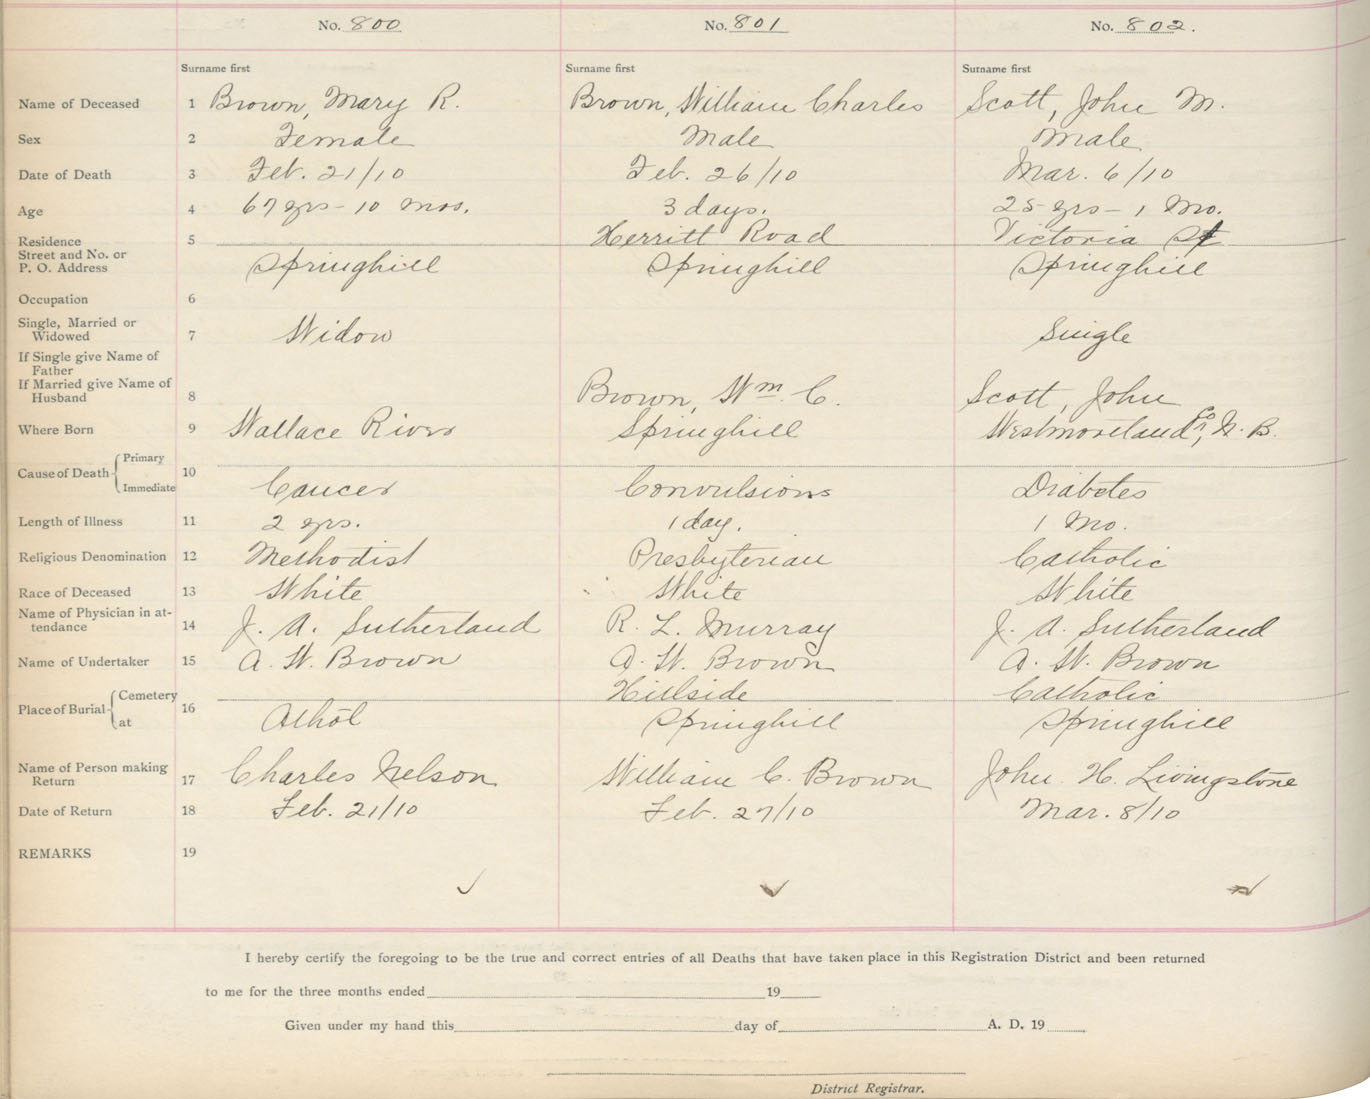 No. 800 No. 801 No. 802.
Surname first Surname first Surname first
Name of Deceased 1 Brown, Mary R. Brown, William Charles Scott, John M.
Sex 2 Female Male Male
Date of Death 3 Feb. 21/10 Feb. 26/10 Mar. 6/10
Age 4 67 yrs - 10 mos. 3 days. 25 yrs - 1 Mo.
Residence 5 Herritt Road Victoria St
Street and No. or
P. O. Address Springhill Springhill Springhill
Occupation 6
Single, Married or
Widowed 7 Widow Single
If Single give Name of
Father
If Married give Name of
Husband 8 Brown, Wm. C. Scott, John
Where Born 9 Wallace River Springhill Westmoreland Co, N. B.
Primary
Cause of Death 10
Immediate Cancer Convulsions Diabetes
Length of Illness 11 2 yrs. 1 day. 1 Mo.
Religious Denomination 12 Methodist Presbyterian Catholic
Race of Deceased 13 White White White
Name of Physician in at-
tendance 14 J. A. Sutherland R. L. Murray J. A. Sutherland
Name of Undertaker 15 A. W. Brown A. W. Brown A. W. Brown
Cemetery Hillside Catholic
Place of Burial 16
at Athol Springhill Springhill
Name of Person making
Return 17 Charles Nelson William C. Brown John H. Livingstone
Date of Return 18 Feb. 21/10 Feb. 27/10 Mar. 8/10
REMARKS 19
I hereby certify the foregoing to be the true and correct entries of all Deaths that have taken place in this Registration District and been returned
to me for the three months ended 19
Given under my hand this day of A. D. 19
District Registrar.